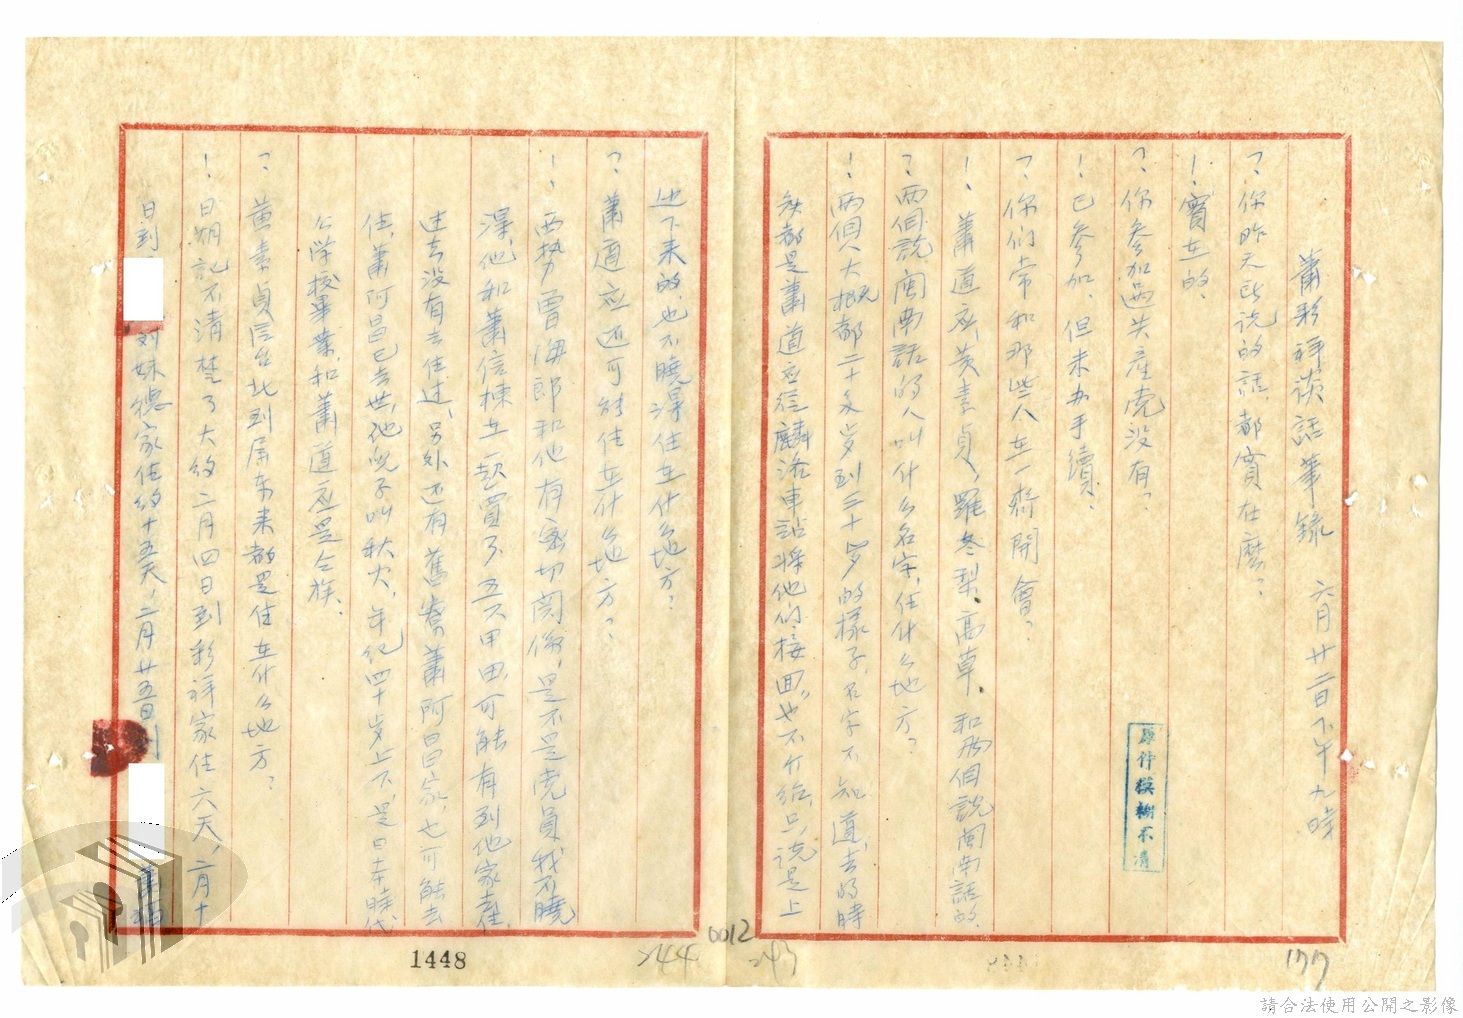 蕭彩祥談話筆錄　六月廿二日下午九時
？你昨天所说的話，都實在麽？
！實在的。
？你参加过共產党没有？
！已参加，但未办手續。
？你们常和那些人在一齊開會？
！蕭道应、黃素貞、羅冬梨、高草、和两個說閩南話的。
？两個說閩南話的人叫什么名字，住什么地方？
！两個人大概都二十多岁到三十岁的樣子，名字不知道，去的時
候都是蕭道应從麟洛車站將他们接回，也不介紹，只說是上
地下来的，也不曉得住在什么地方？
？蕭道应还可能住在什么地方？
！西勢曾海郎和他有密切関係，是不是党員我不曉
得，他和蕭信棟在一起買了五六甲田，可能有到他家去住，
过去没有去住过，另外还有舊寮蕭阿昌家，也可能去
住，蕭阿昌已去世，他兒子叫秋火，年纪四十岁上下，是日本時代
公学校畢業，和蕭道应是仝族。
？黃素貞信台北到屏东来都是住在什么地方？
！日期記不清楚了大約二月四日到彩祥家住六天，二月十
日到
刘妹德家住約十五天，二月廿五日到
原件模糊不清
1448
0012
244
243
177
請合法使用公開之影像